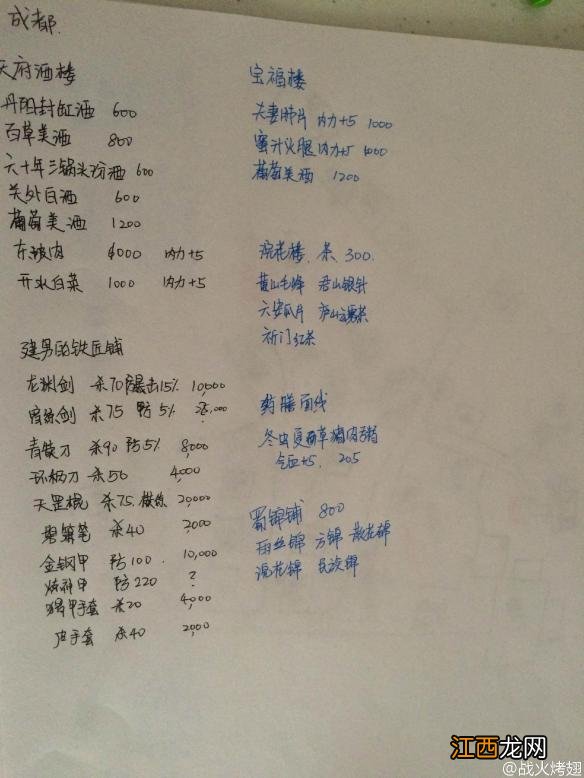 成都
天府酒楼
丹阳封缸酒 600
百草美酒 800
六十年三锅头汾酒 600
关外白酒 600
葡萄美酒 1200
东坡肉 4000 内力+5
开水白菜 1000 内力+5
建男的铁匠铺
龙渊剑 杀70 暴击15% 10,000
杀75 防5%
青铁刀 杀90 防5% 8,000
环柄刀 杀50 4,000
天罡棍 杀75 20,000
碧箫笔 杀40 2,000
金钢甲 防100 10,000
炼神甲 防220 ?
猬甲手套 杀20 4,000
皮手套 杀40 2,000
宝福楼
夫妻肺片 内力+5 1000
蜜汁火腿 内力+5 1000
葡萄美酒 1200
浣花楼、茶 300
黄山毛峰 君山银针
六安瓜片 庐山云雾茶
祈门红茶
药膳面线
冬虫夏草猪肉粥
气血+5 205
蜀锦铺 800
雨丝锦 方锦 散花锦
浣花锦 民族锦
江西龙网
@战火烤翅